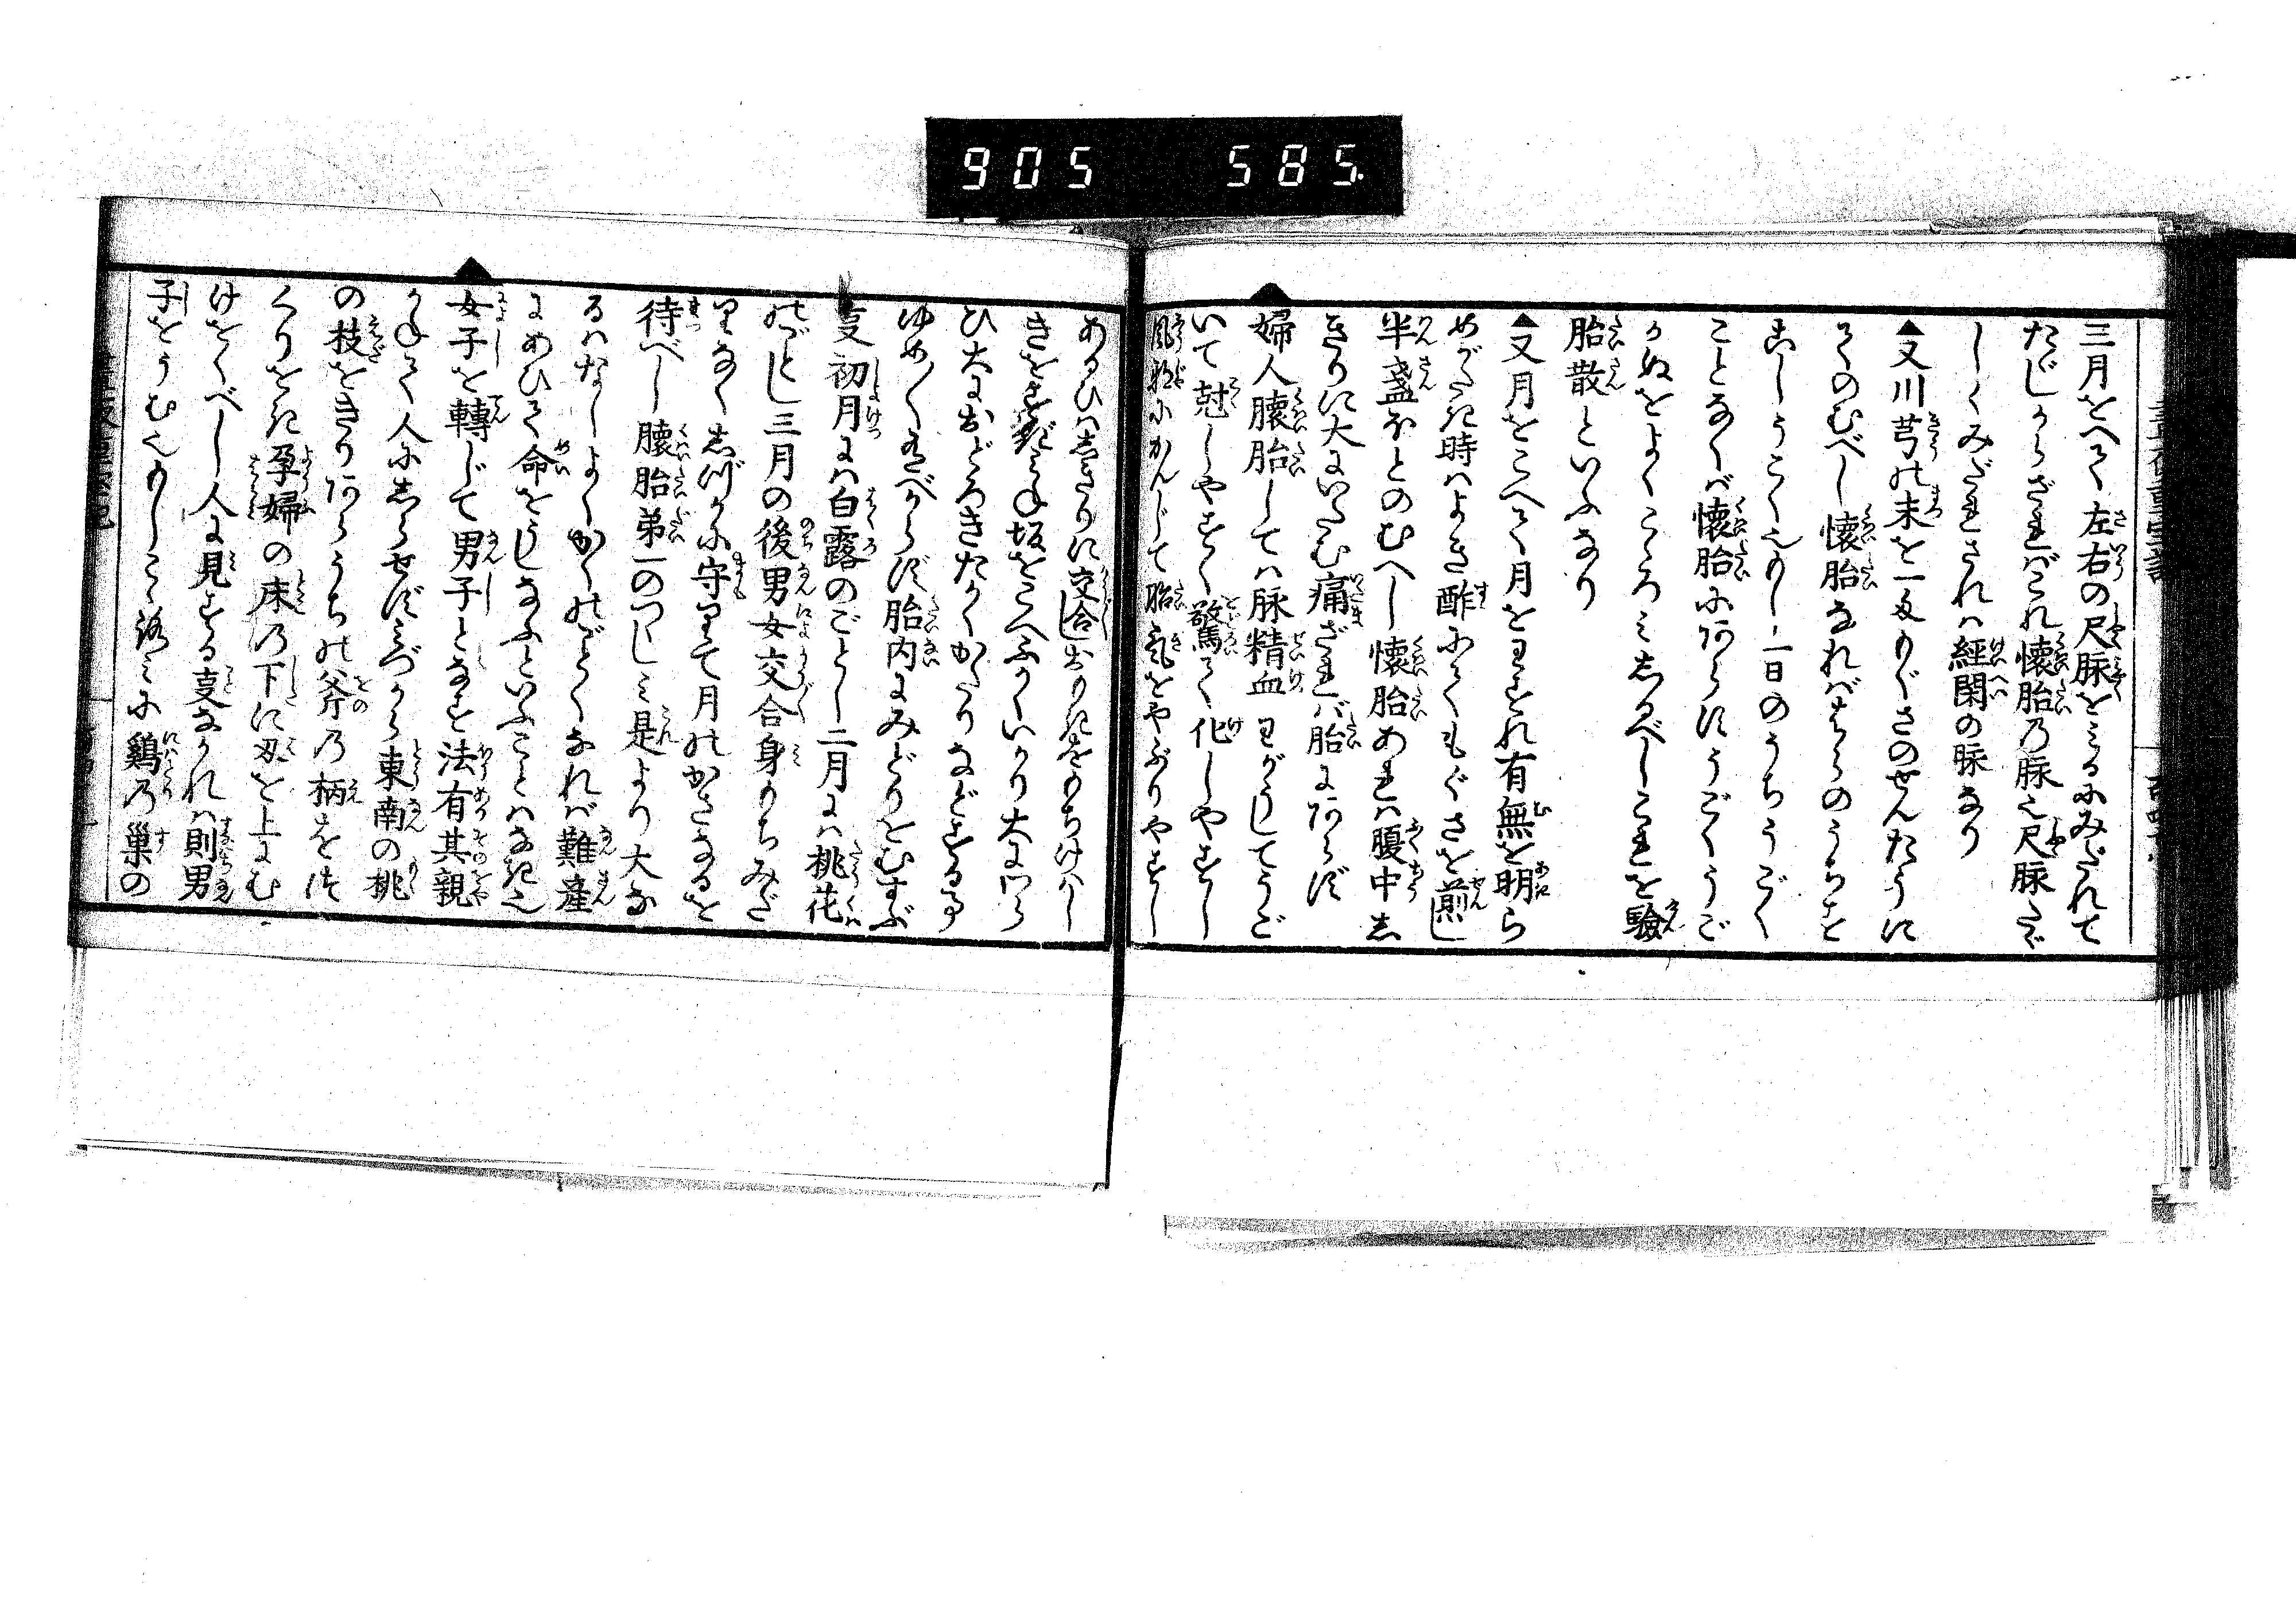 905 585.
三月をへて左右の尺脉をみるにみだれて
たゞしからざればこれ懐胎乃脉也尺脉たゞ
しくみだれされハ經閉の脉なり
▲又川芎の末を一匁もぐさのせんたうに
てのむべし懐胎なればはらのうちを
すこしうごく也もし二日のうちうごく
ことなくバ懐胎にあらずうごくうご
かぬをよくこゝろみしるべしこれを驗
胎散といふなり
▲又月をこへて月を見ずれ有無を明ら
めがたき時ハよき酢にてもぐさを煎じ
半盞ほとのむへし懐胎あれハ腹中し
きりに大にいたむ痛ざれバ胎にあらず
▲婦人懐胎してハ脉精血こがうしてうご
いて尅しやすく驚て化しやすし
風邪にかんじて胎氣をやぶりやすし
あるひハしきりに交合しおもきをもちけハし
きをすぎ坂をこへふかくいかり大にわら
ひ大におどろきたかくかたりなどする事
ゆめ〳〵すべからず胎内にみどりをむすぶ
事初月にハ白露のごとし二月にハ桃花
のごとし三月の後男女交合身もちみだ
りなくしづかに守りて月のかさなるを
待べし懐胎第一のつゝしみ是より大な
るハなしよくかくのごとくなれバ難産
にあひて命をうしなふといふことハなき也
▲女子を轉じて男子となす法有其親
かねて人にしらせずみづから東南の桃
の枝をきりあらうちの斧乃柄をつ
くりをき孕婦の床乃下に刃を上にむ
けをくべし人に見する事なかれハ則男
子をうむ也もしこゝろみに鷄乃巣の